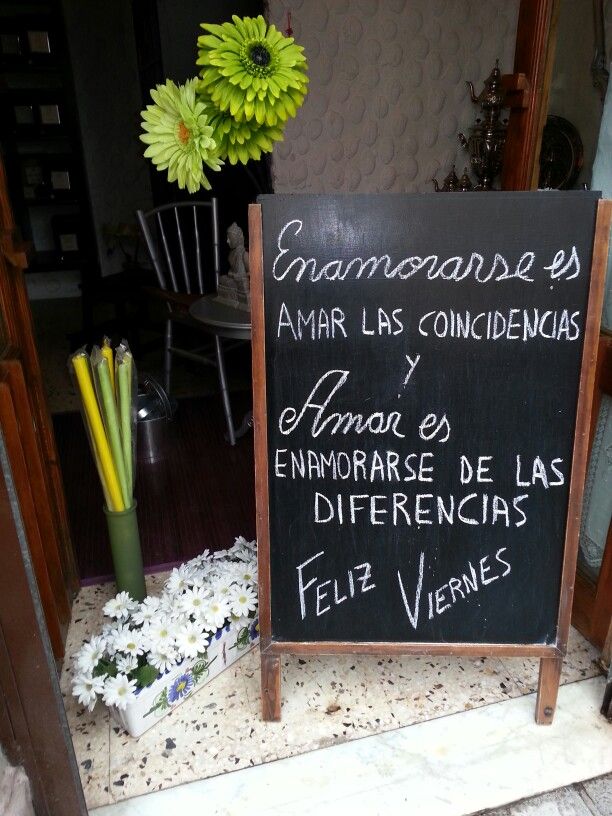 Enamorarse es
AMAR LAS COINCIDENCIAS
Y
Amar es
ENAMORARSE DE LAS
DIFERENCIAS
FELIZ VIERNES